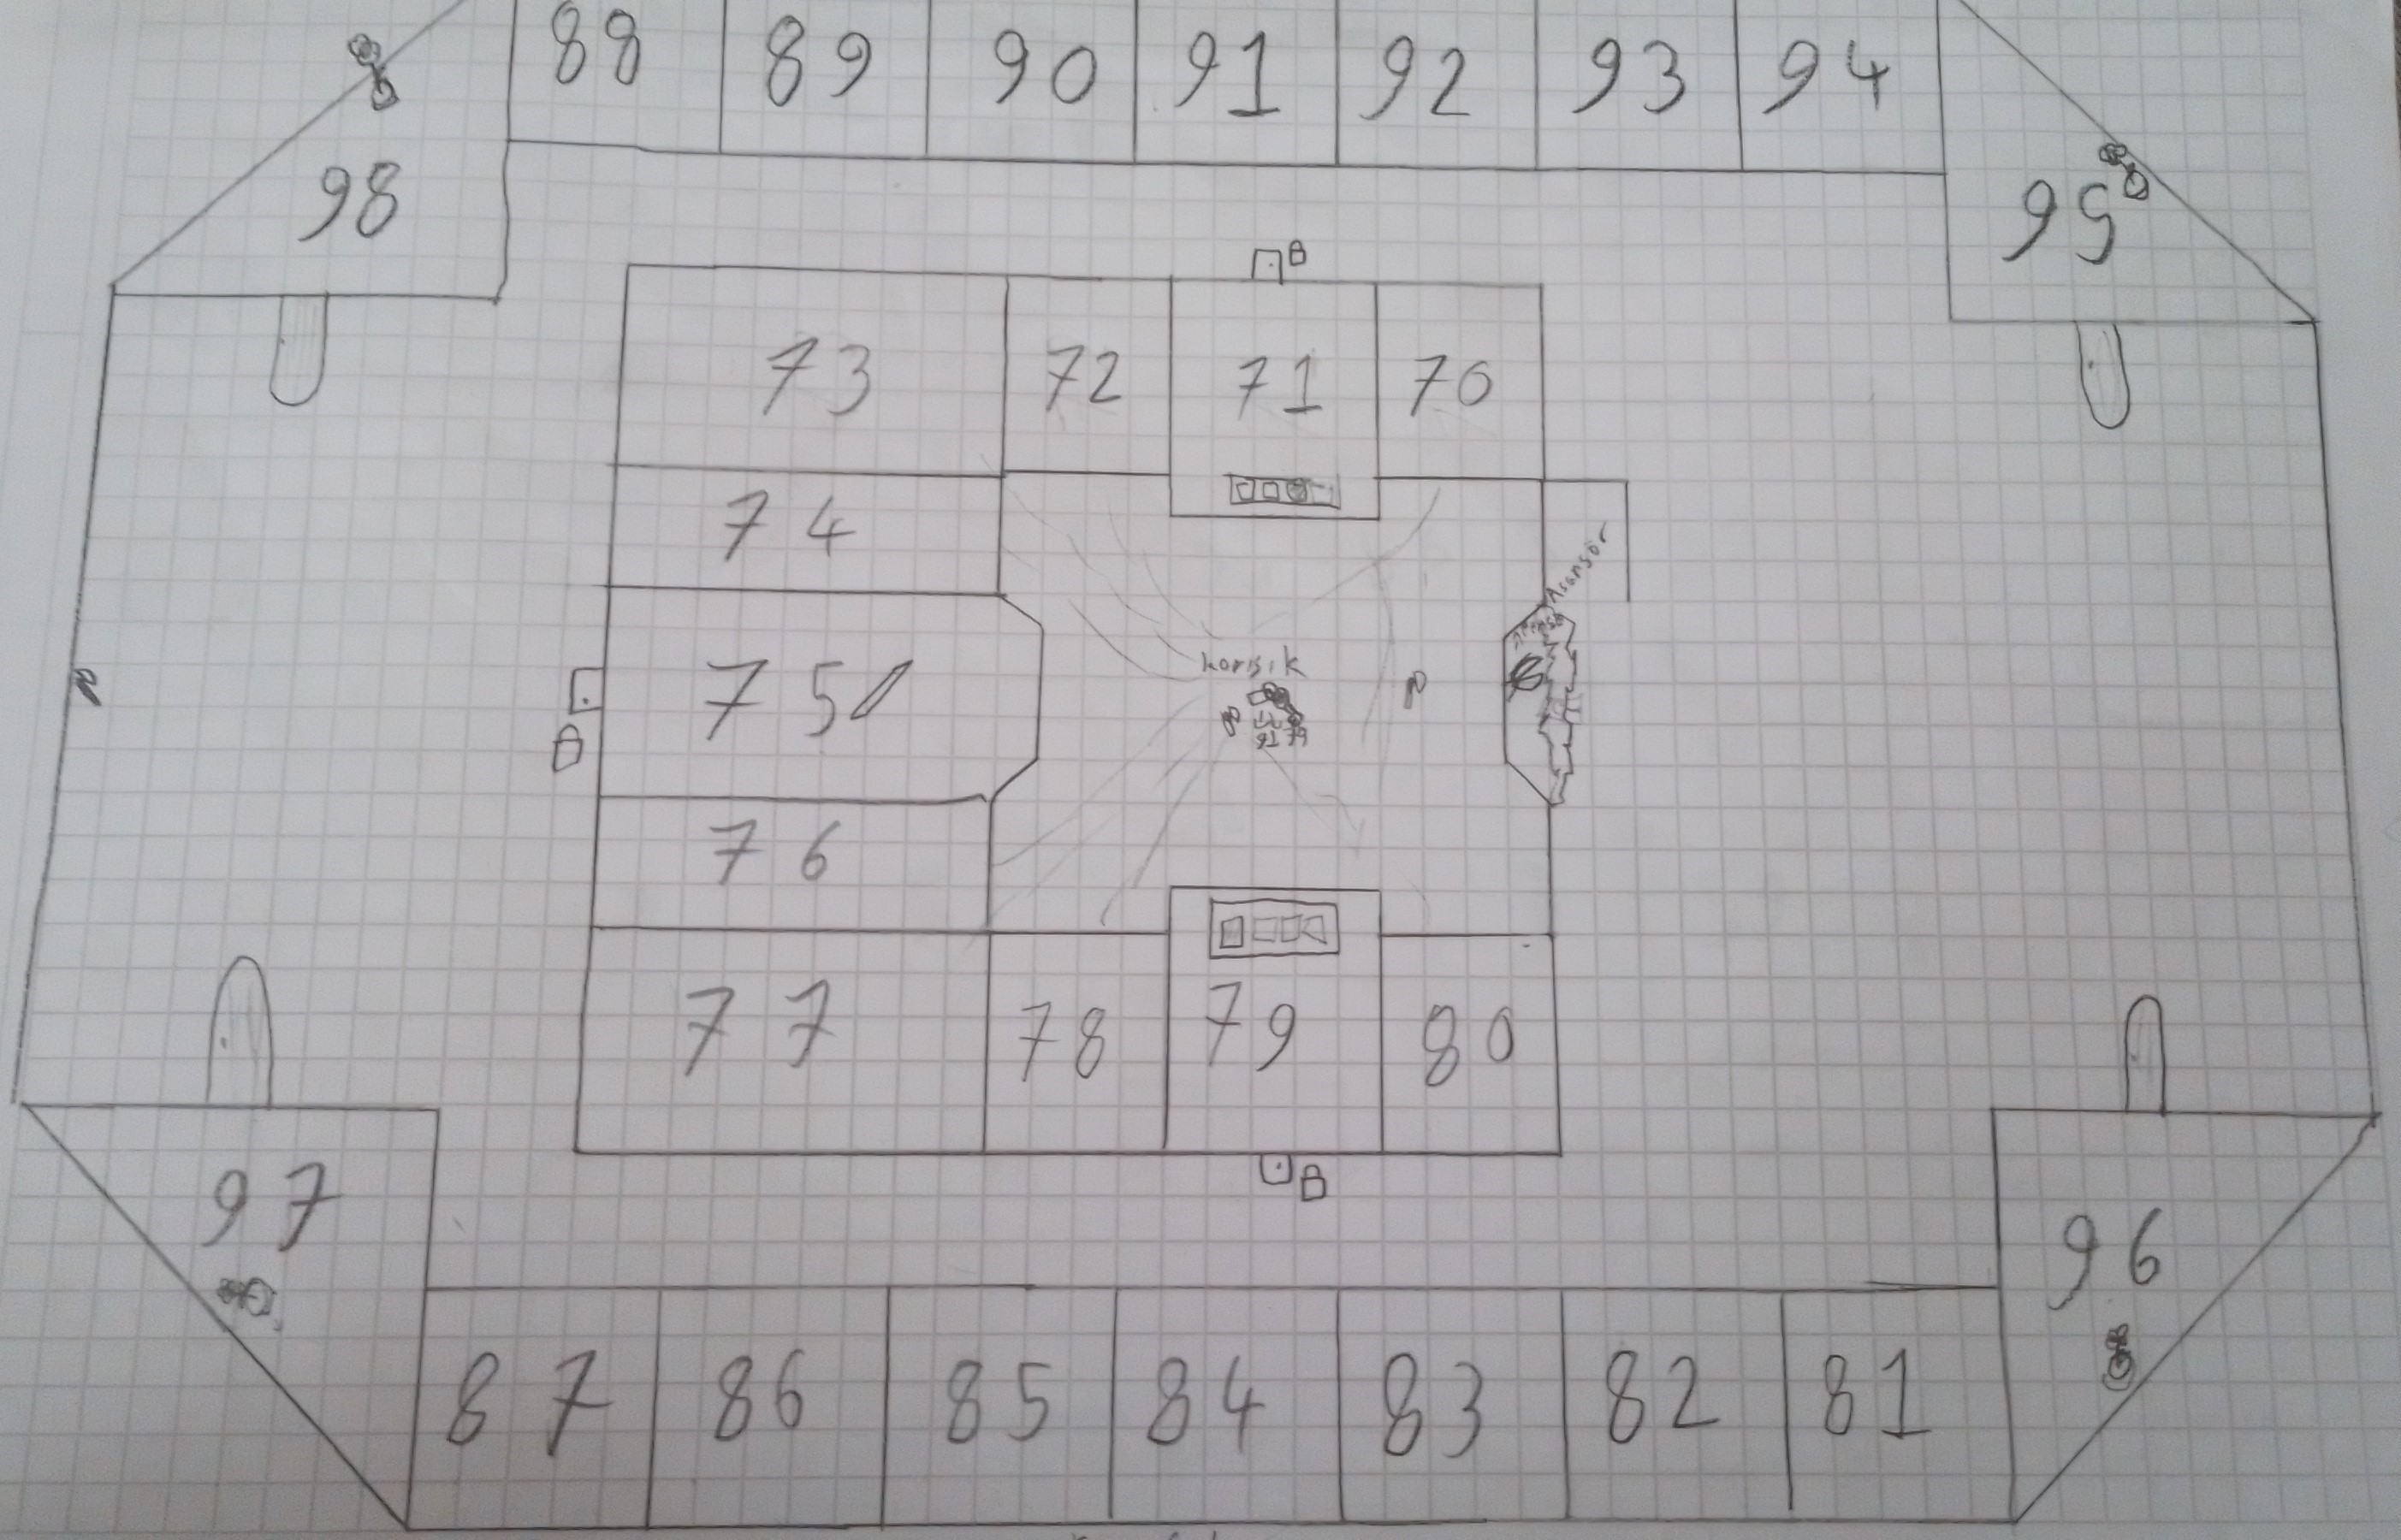 88 89 90 91 92 93 94
98 95
B
73 72 71 70
74
Asansör
karışık
75
76
77 78 79 80
97 96
87 86 85 84 83 82 81